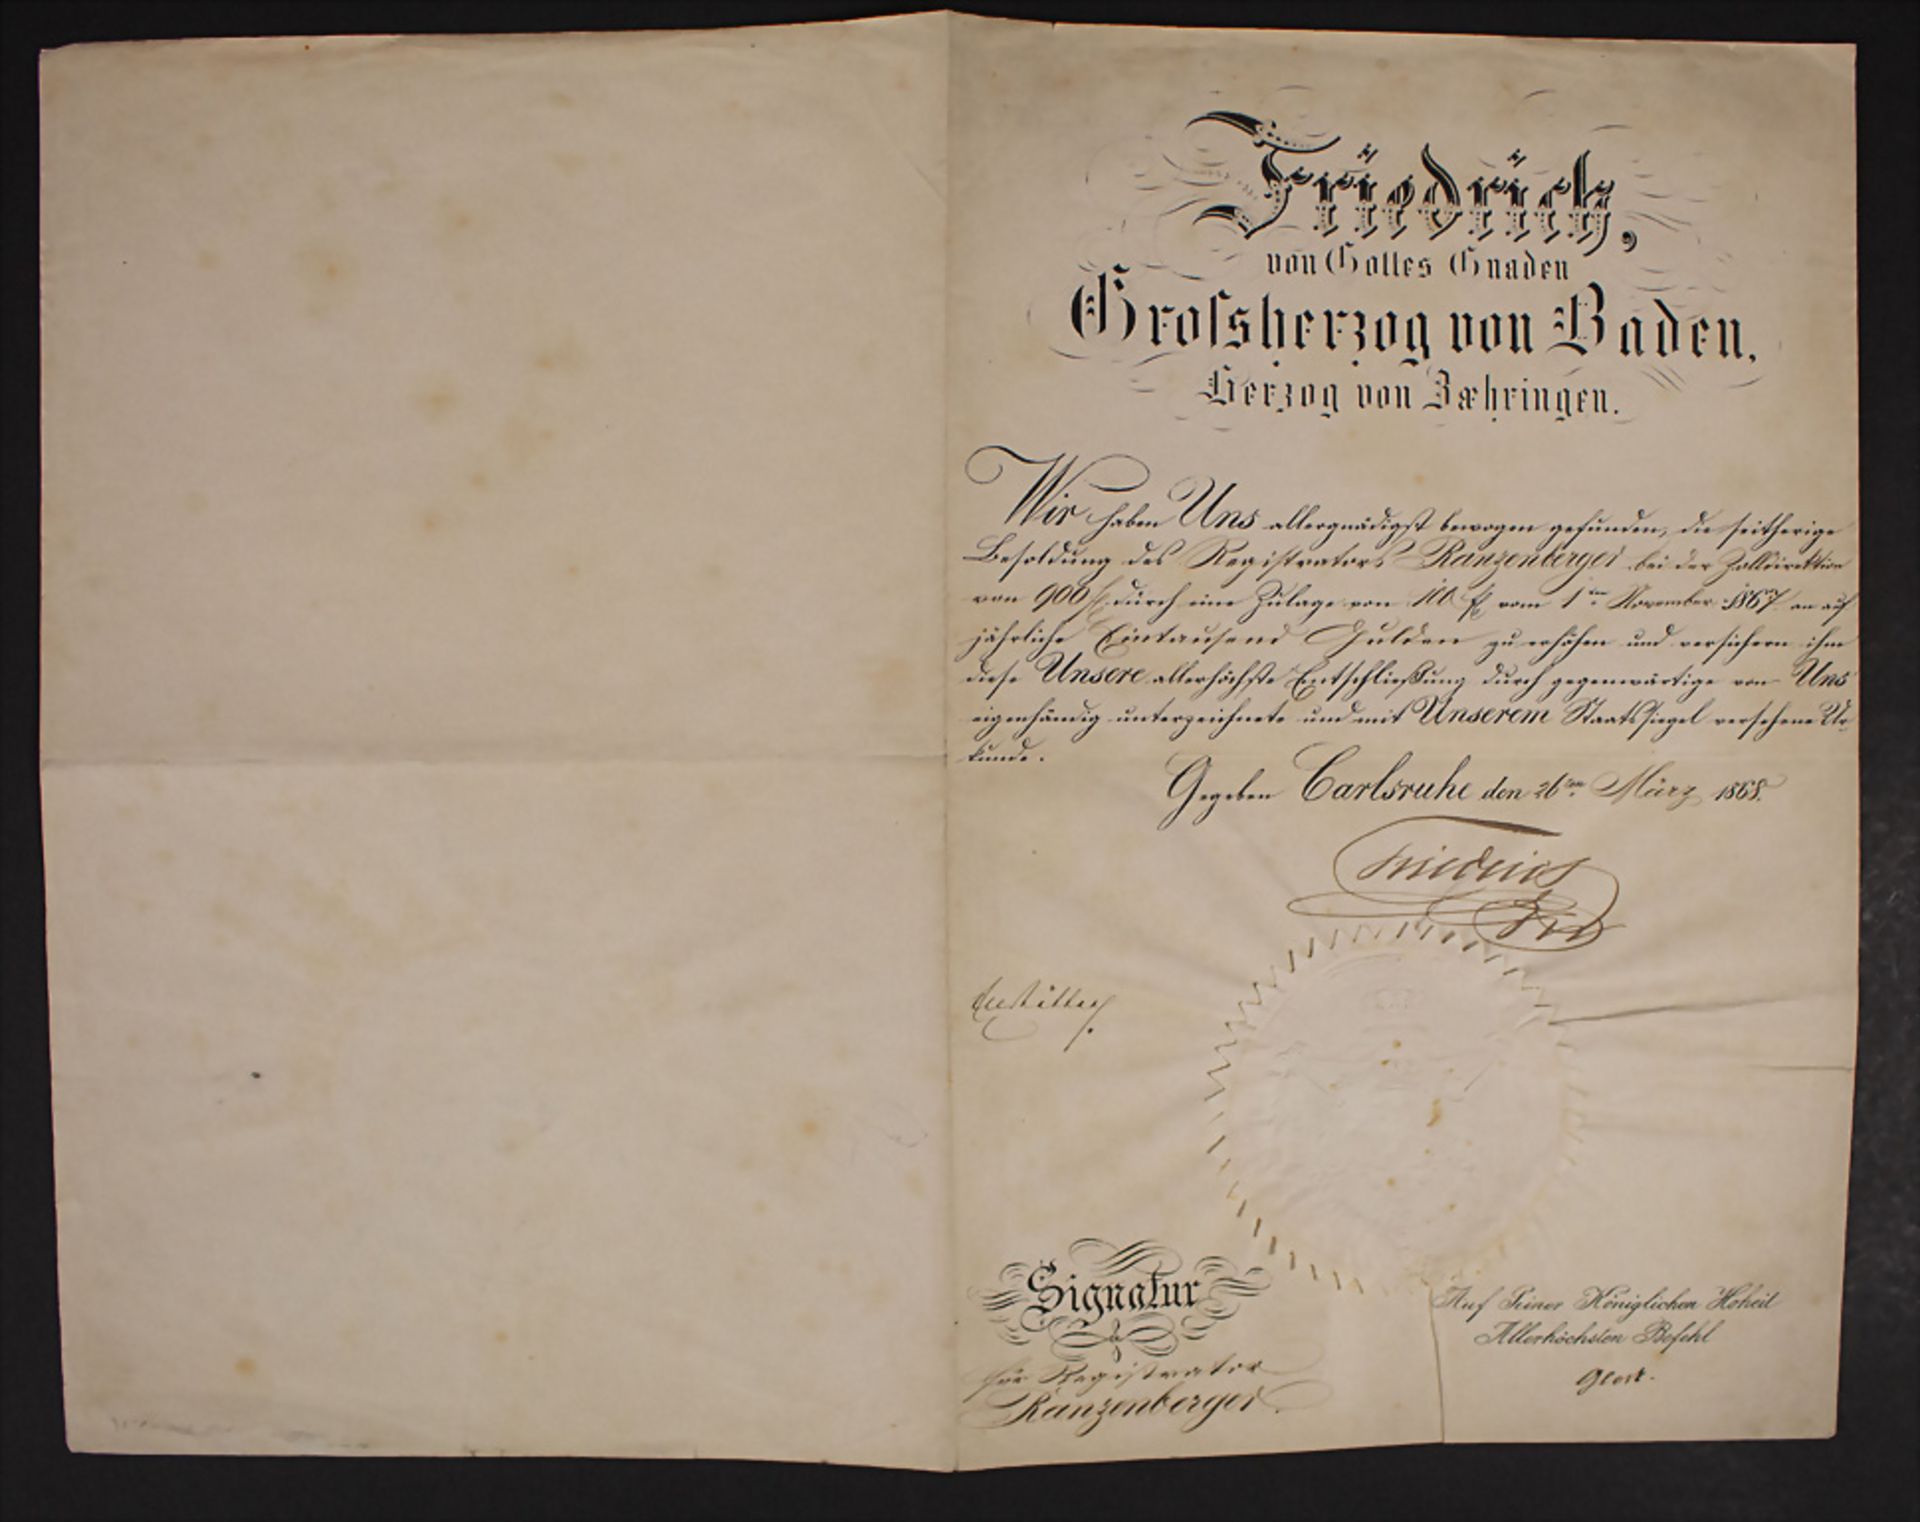 Friedrich,
von Gottes Gnaden
Grossherzog von Baden,
Herzog von Zæhringen.
Wir haben Uns allergnädigst bewogen gefunden, die seitherige
Besoldung des Registrators Ranzenberger bei der Zolldirektion
von 900 fl. durch eine Zulage von 100 fl. vom 1ten November 1867 an auf
jährliche Eintausend Gulden zu erhöhen und versichern ihm
diese Unsere allerhöchste Entschließung durch gegenwärtige von Uns
eigenhändig unterzeichnete und mit Unserem Staatssiegel versehene Ur-
kunde.
Gegeben Carlsruhe den 26ten März 1868.
Friedrich
Signatur
für Registrator
Ranzenberger.
Auf Seiner Königlichen Hoheit
Allerhöchsten Befehl